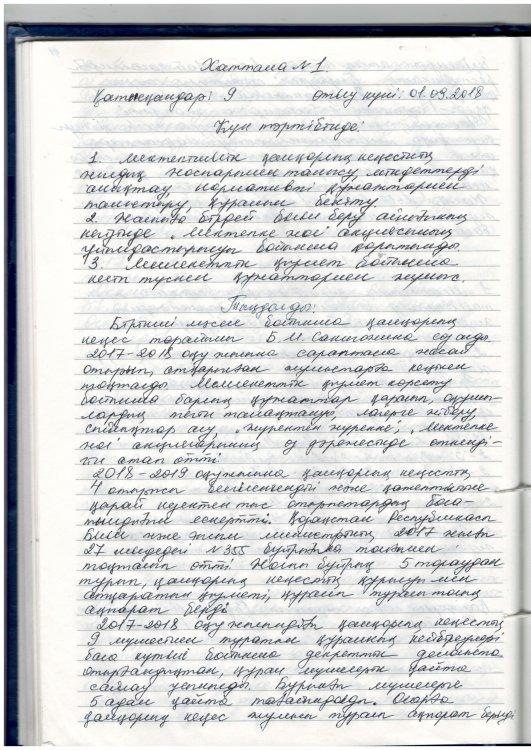 Хаттама №1.
Қатысқандар: 9 өтілу күні: 01.09.2018
Күн тәртібінде:
1. Мектептишілік қамқорлық кеңесінің
жылдық жоспарымен танысу, міндеттерді
анықтау нормативті құжаттармен
таныстыру, құрамын бекіту
2. Жалпыға бірдей білім беру айлығының
негізінде „Мектепке жол" акциясының
ұйымдастырылуы бойынша қорытынды.
3. Мемлекеттік қызмет бойынша
келіп түскен құжаттармен жұмыс.
Тыңдалды:
Бірінші мәселе бойынша қамқорлық
кеңес төрайымы Б.М. сөз алды.
2017-2018 оқу жылына сараптама жасай
отырып, атқарылған жұмыстарға кеңінен
тоқталды. Мемлекеттік қызмет көрсету
бойынша барлық құжаттар қаралып, оқушы-
лардың тегін тамақтануы, лагерге жіберу
алу, „Жүректен жүрекке", „Мектепке
жол" акцияларының өз дәрежесінде өткенді-
гін атап өтті.
2018-2019 оқу жылына қамқорлық кеңестің
4 отырысы белгіленгендігі және қажеттілікке
қарай кезектен тыс отырыстардың бола-
тындығын ескертті. Қазақстан Республикасы
Білім және ғылым министрінің 2017 жылғы
27 шілдедегі №355 бұйрығына толығымен
тоқталып өтті. Жалпы бұйрық 5 тараудан
тұрып, қамқорлық кеңестің құрылуы мен
атқаратын қызметі, құрамы туралы толық
ақпарат берді.
2017-2018 оқу жылындағы қамқорлық кеңестің
9 мүшесінен тұратын құрамның кейбіреулері
бала күтімі бойынша декреттік демалыста
отырғандықтан, құрам мүшелерін қайта
сайлау ұсынылды. Бұрынғы мүшелерге
5 адам қайта тағайындалды. Оларға
қамқорлық кеңес жұмысы туралы ақпарат берілді